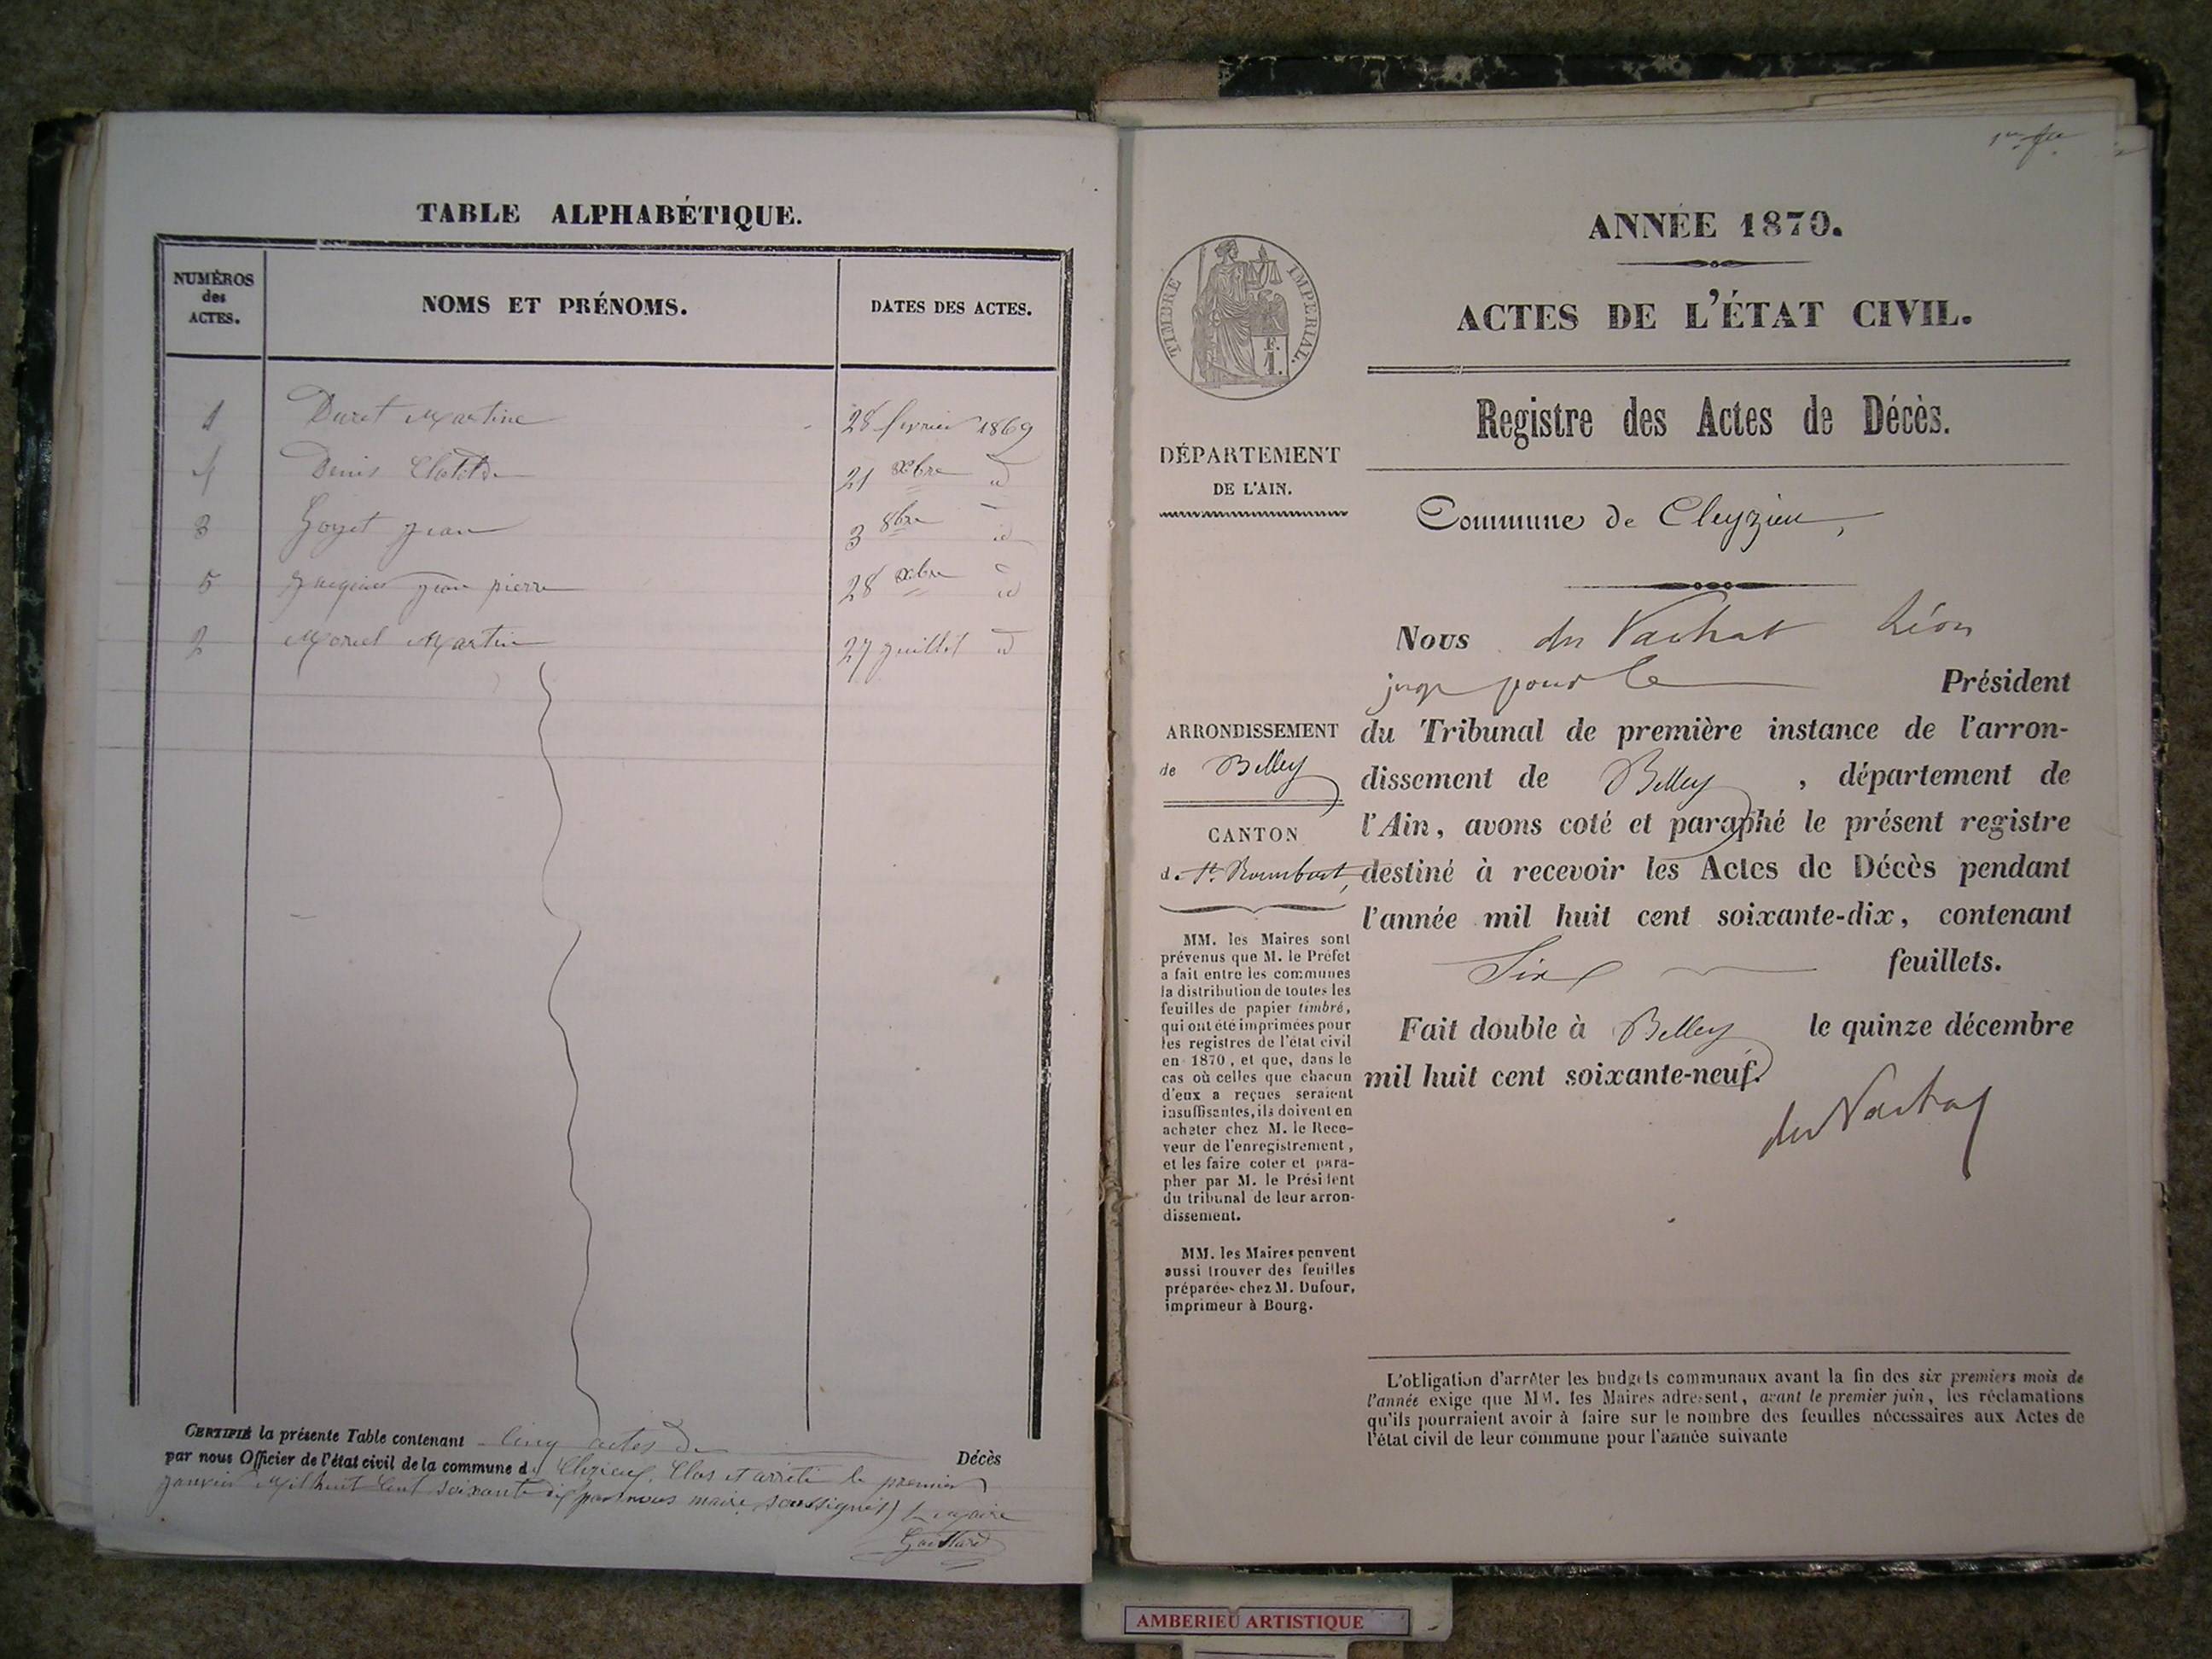 TABLE ALPHABÉTIQUE.
NUMÉROS
des
ACTES.
NOMS ET PRÉNOMS.
DATES DES ACTES.
1 Duret Martine 28 fevrier 1869
4 Denis Clotilde 21 Xbre id
3 Goyet Jean 3 8bre id
5 Jean pierre 28 Xbre id
2 Morel Martin 27 juillet id
CERTIFIÉ la présente Table contenant Cinq actes de Décès
par nous Officier de l'état civil de la commune de Cleyzieu. Clos et arrêté le premier
janvier Mil huit Cent soixante dix par nous maire soussigné) Le maire
1er fet
ANNÉE 1870.
ACTES DE L'ÉTAT CIVIL.
TIMBRE IMPÉRIAL.
F.
1.
Registre des Actes de Décès.
DÉPARTEMENT
DE L'AIN.
Commune de Cleyzieu,
Nous du Vachat Léon
juge pour le Président
ARRONDISSEMENT
de Belley
CANTON
de St. Rambert,
du Tribunal de première instance de l'arron-
dissement de Belley, département de
l'Ain, avons coté et paraphé le présent registre
destiné à recevoir les Actes de Décès pendant
l'année mil huit cent soixante-dix, contenant
Six feuillets.
Fait double à Belley le quinze décembre
mil huit cent soixante-neuf.
du Vachat
MM. les Maires sont
prévenus que M. le Préfet
a fait entre les communes
la distribution de toutes les
feuilles de papier timbré,
qui ont été imprimées pour
les registres de l'état civil
en 1870, et que, dans le
cas où celles que chacun
d'eux a reçues seraient
insuffisantes, ils doivent en
acheter chez M. le Rece-
veur de l'enregistrement,
et les faire coter et para-
pher par M. le Président
du tribunal de leur arron-
dissement.
MM. les Maires peuvent
aussi trouver des feuilles
préparées chez M. Dufour,
imprimeur à Bourg.
L'obligation d'arrêter les budgets communaux avant la fin des six premiers mois de
l'année exige que MM. les Maires adressent, avant le premier juin, les réclamations
qu'ils pourraient avoir à faire sur le nombre des feuilles nécessaires aux Actes de
l'état civil de leur commune pour l'année suivante
AMBERIEU ARTISTIQUE